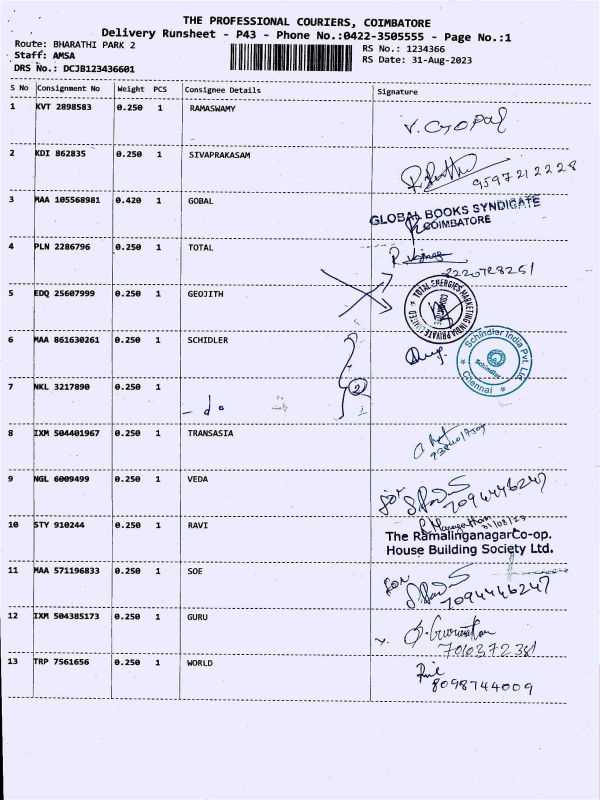 THE PROFESSIONAL COURIERS, COIMBATORE
Delivery Runsheet - P43 - Phone No.:0422-3505555 - Page No.:1
Route: BHARATHI PARK 2
RS No.: 1234366
Staff: AMSA
RS Date: 31-Aug-2023
DRS No.: DCJB123436601
S No Consignment No Weight PCS Consignee Details Signature
1 KVT 2898583 0.250 1 RAMASWAMY V. Gopal
2 KDI 862835 0.250 1 SIVAPRAKASAM
9597212228
3 MAA 105568981 0.420 1 GOBAL
GLOBAL BOOKS SYNDICATE
COIMBATORE
4 PLN 2286796 0.250 1 TOTAL
5 EDQ 25607999 0.250 1 GEOJITH
TOTAL ENERGIES MARKETING INDIA PRIVATE LIMITED
6 MAA 861630261 0.250 1 SCHIDLER
Schindler India Pvt. Ltd.
Schindler
Chennai
7 NKL 3217890 0.250 1
- do
2
8 IXM 504401967 0.250 1 TRANSASIA
9 NGL 6009499 0.250 1 VEDA
for
7094446247
10 STY 910244 0.250 1 RAVI
31/08/23
The RamalinganagarCo-op.
House Building Society Ltd.
11 MAA 571196833 0.250 1 SOE
for
7094446247
12 IXM 504385173 0.250 1 GURU
7010372381
13 TRP 7561656 0.250 1 WORLD
8098744009